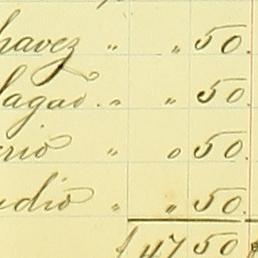 havez " " 50.
lagao . " " 50.
erio " 0 50.
udio " " 50.
$ 47 50